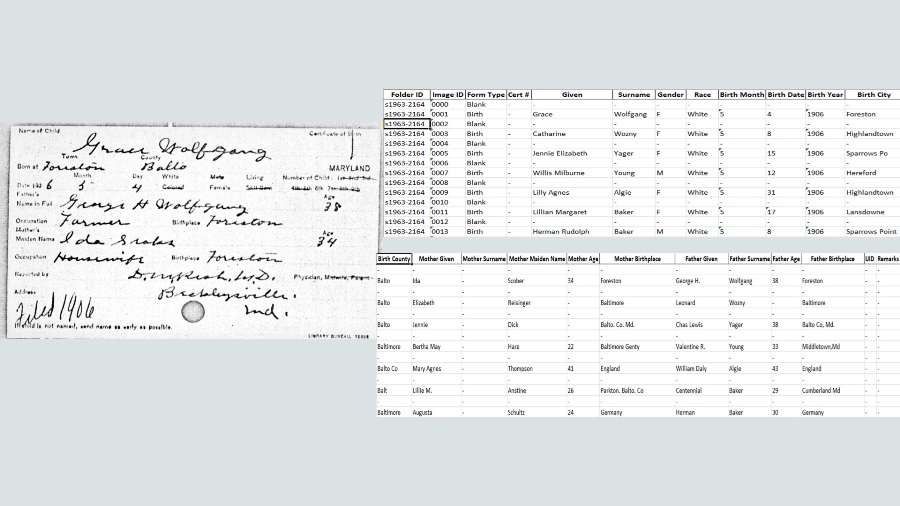 Name of Child
Certificate of Birth
Grace Wolfgang
Town County
Born at Foreston Balto MARYLAND
Month Day White Male Living Number of Child.
Date 190 6 5 4 Colored Female Still Born 1st 2nd 3rd 4th 5th 6th 7th 8th 9th
Father's Age
Name in Full George H Wolfgang 38
Occupation Farmer Birthplace Foreston
Mother's Age
Maiden Name Ida 34
Occupation Housewife Birthplace Foreston
Reported by M.D. Physician, Midwife, Parent
Address
Md.
Filed 1906
If child is not named, send name as early as possible.
LIBRARY BUREAU
Folder ID Image ID Form Type Cert # Given Surname Gender Race Birth Month Birth Date Birth Year Birth City
s1963-2164 0000 Blank - - - - - - - - -
s1963-2164 0001 Birth - Grace Wolfgang F White 5 4 1906 Foreston
s1963-2164 0002 Blank - - - - - - - - -
s1963-2164 0003 Birth - Catharine Wozny F White 5 8 1906 Highlandtown
s1963-2164 0004 Blank - - - - - - - - -
s1963-2164 0005 Birth - Jennie Elizabeth Yager F White 5 15 1906 Sparrows Po
s1963-2164 0006 Blank - - - - - - - - -
s1963-2164 0007 Birth - Willis Milburne Young M White 5 12 1906 Hereford
s1963-2164 0008 Blank - - - - - - - - -
s1963-2164 0009 Birth - Lilly Agnes Algie F White 5 31 1906 Highlandtown
s1963-2164 0010 Blank - - - - - - - - -
s1963-2164 0011 Birth - Lillian Margaret Baker F White 5 17 1906 Lansdowne
s1963-2164 0012 Blank - - - - - - - - -
s1963-2164 0013 Birth - Herman Rudolph Baker M White 5 8 1906 Sparrows Point
Birth County Mother Given Mother Surname Mother Maiden Name Mother Age Mother Birthplace Father Given Father Surname Father Age Father Birthplace UID Remarks
- - - - - - - - - - - -
Balto Ida - Scober 34 Foreston George H. Wolfgang 38 Foreston - -
- - - - - - - - - - - -
Balto Elizabeth - Reisinger - Baltimore Leonard Wozny - Baltimore - -
- - - - - - - - - - - -
Balto Jennie - Dick - Balto. Co. Md. Chas Lewis Yager 38 Balto Co, Md. - -
- - - - - - - - - - - -
Baltimore Bertha May - Hare 22 Baltimore Genty Valentine R. Young 33 Middletown,Md - -
- - - - - - - - - - - -
Balto Co Mary Agnes - Thompson 41 England William Daly Algie 43 England - -
- - - - - - - - - - - -
Balt Lillie M. - Anstine 26 Parkton. Balto. Co Centennial Baker 29 Cumberland Md - -
- - - - - - - - - - - -
Baltimore Augusta - Schultz 24 Germany Herman Baker 30 Germany - -